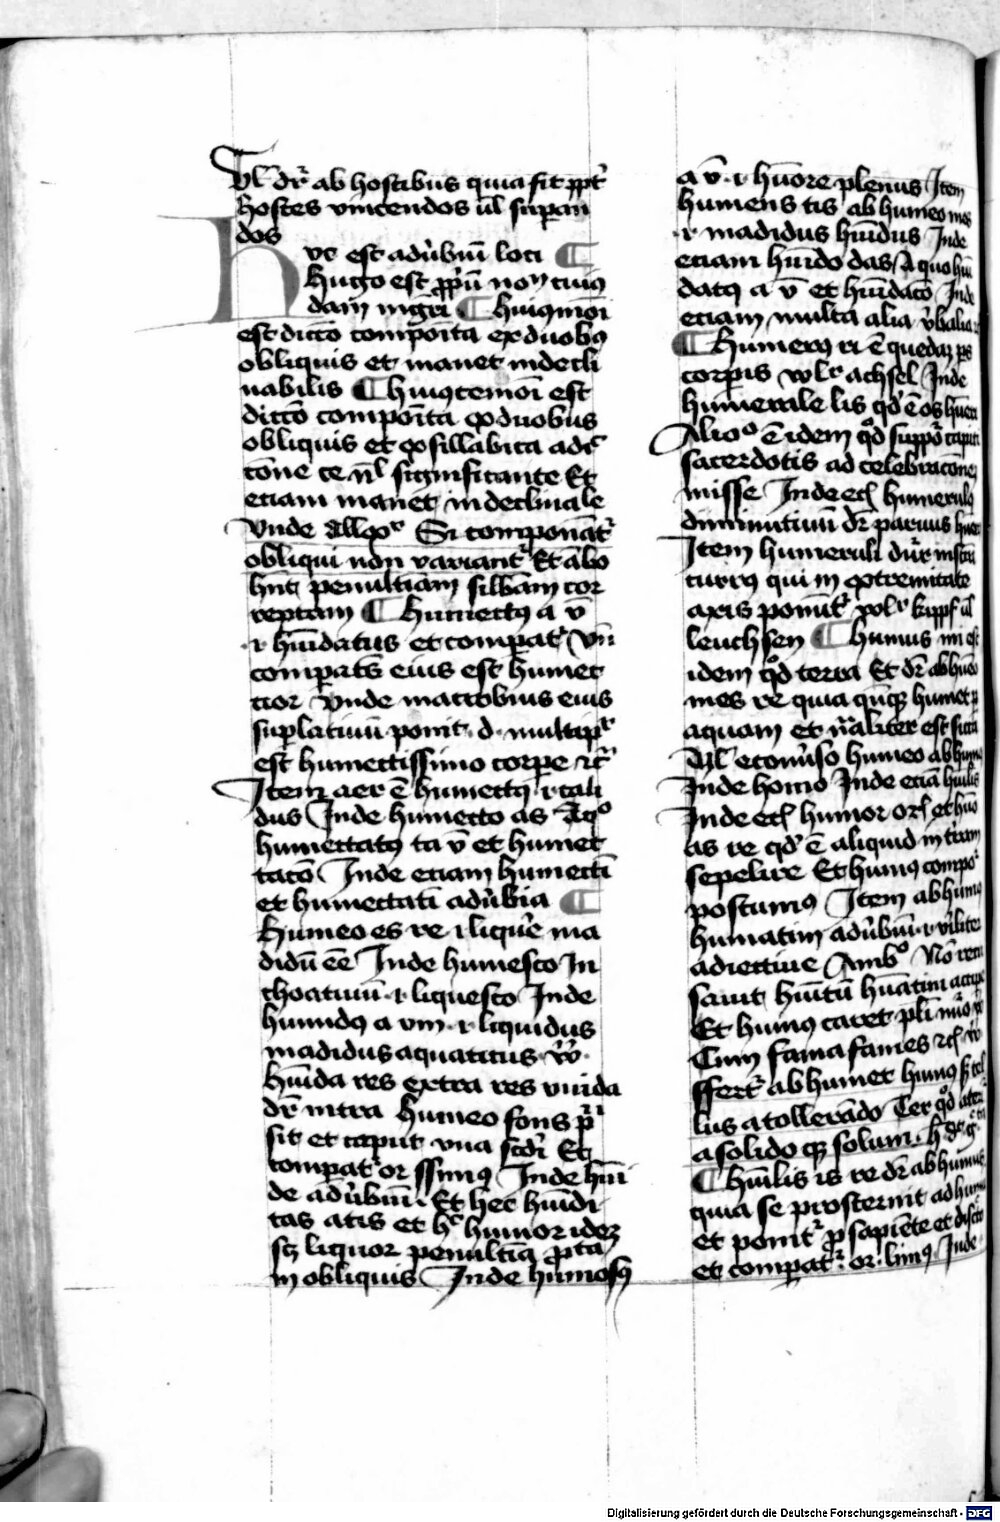 Vl' dr̄ ab hostibus quia fit ꝓpt'
hostes vincendos ul' supan
dos
Huc est adūbiū loci ¶
Hugo est ꝓpū non cuiꝰ
dam mgr̄i ¶ Huiꝰmōi
est dictō compoīta ex duobꝰ
obliquis et manet indecli
nabilis ¶ huiꝰcemōi est
dictō compoīta ex duobus
obliquis et ex sillabica adc̄
cōne ce nl' significante Et
etiam manet indeclinale
Vnde allexʳ Si componāt'
obliqui non variant' Et ābo
hnt penultimam sillbam cor
reptam ¶ Humectꝰ a v̄
.i. hūidatus et compat' Vn̄
compatꝰ eius est humec
tior vnde macrobius eius
suplatiuū ponit d. multipʳ
est humectissimo corpe ꝛc̄
Item aer ē humectꝰ .i. cali
dus Inde humecto as A quo
humectatꝰ ta v̄ et humec
tatō Inde etiam humectī
et humectatī adūbia ¶
Humeo es re .i. liquē'e ma
didū eē Inde humesco In
choatiuū .i. liquesco Inde
humidꝰ a vm .i. liquidus
madidus aquaticus Vꝰ.
Hūida res extra res vuida
dr̄ intra humeo fons p̄'
sit et caput vna scdī Et
compat' or ssimꝰ Inde hūi
de adūbiū Et hec hūidi
tas atis et hᶜ humor idez
scꝫ liquor penultiā ꝓta
in obliquis Inde humosꝰ
a v̄ .i. hūore plenus Item
humens tis ab humeo mes
.i. madidus hūidus Inde
etiam hūido das A quo hūi
datꝰ a v̄ et hūidacō Inde
etiam multa alia v̄balia
¶ Humerꝰ ri ē quedaꝫ ps
corpis wlʳ achsel Inde
humerale lis qd' ē os hūeri
Alio° ē idem qd' suppoʳ caputi
sacerdotis ad celebracōnem
misse Inde ecꝭ humerulꝰ
diminutiuū dr̄ paruus hūerꝰ
Item humeruli dūr instru
turrꝰ qui in extremitate
axis ponūt' wlʳ kipf ul'
leuchsen ¶ Humus mi est
idem qd' terra Et dr̄ ab hūeo
mes re quia qn̄qꝫ humet p
aquam et nāliter est sicca
Vl' econūso humeo ab humo
Inde homo Inde eciā hūilis
Inde ecꝭ humor orꝭ et hūo
as re qd' ē aliquid in terram
sepelire Et humꝰ compoʳ
postumꝰ Item ab humꝰ
humatim adūbiū .i. vlite'
adiectiue Amb°
sauit hūitū hūatim accipe
Et humꝰ caret plī nūo
Cum fama fames ꝛcꝭ
ffert' ab humet humꝰ s̄ tel
lus a tollerādo Ter qd' ater'
a solido qꝫ solum
¶ Hūilis is re dr̄ ab humus
quia se prosternit ad humū
et ponit' ꝓ sapiēte et discō
et compat' or. limꝰ Inde
Digitalisierung gefördert durch die Deutsche Forschungsgemeinschaft - DFG